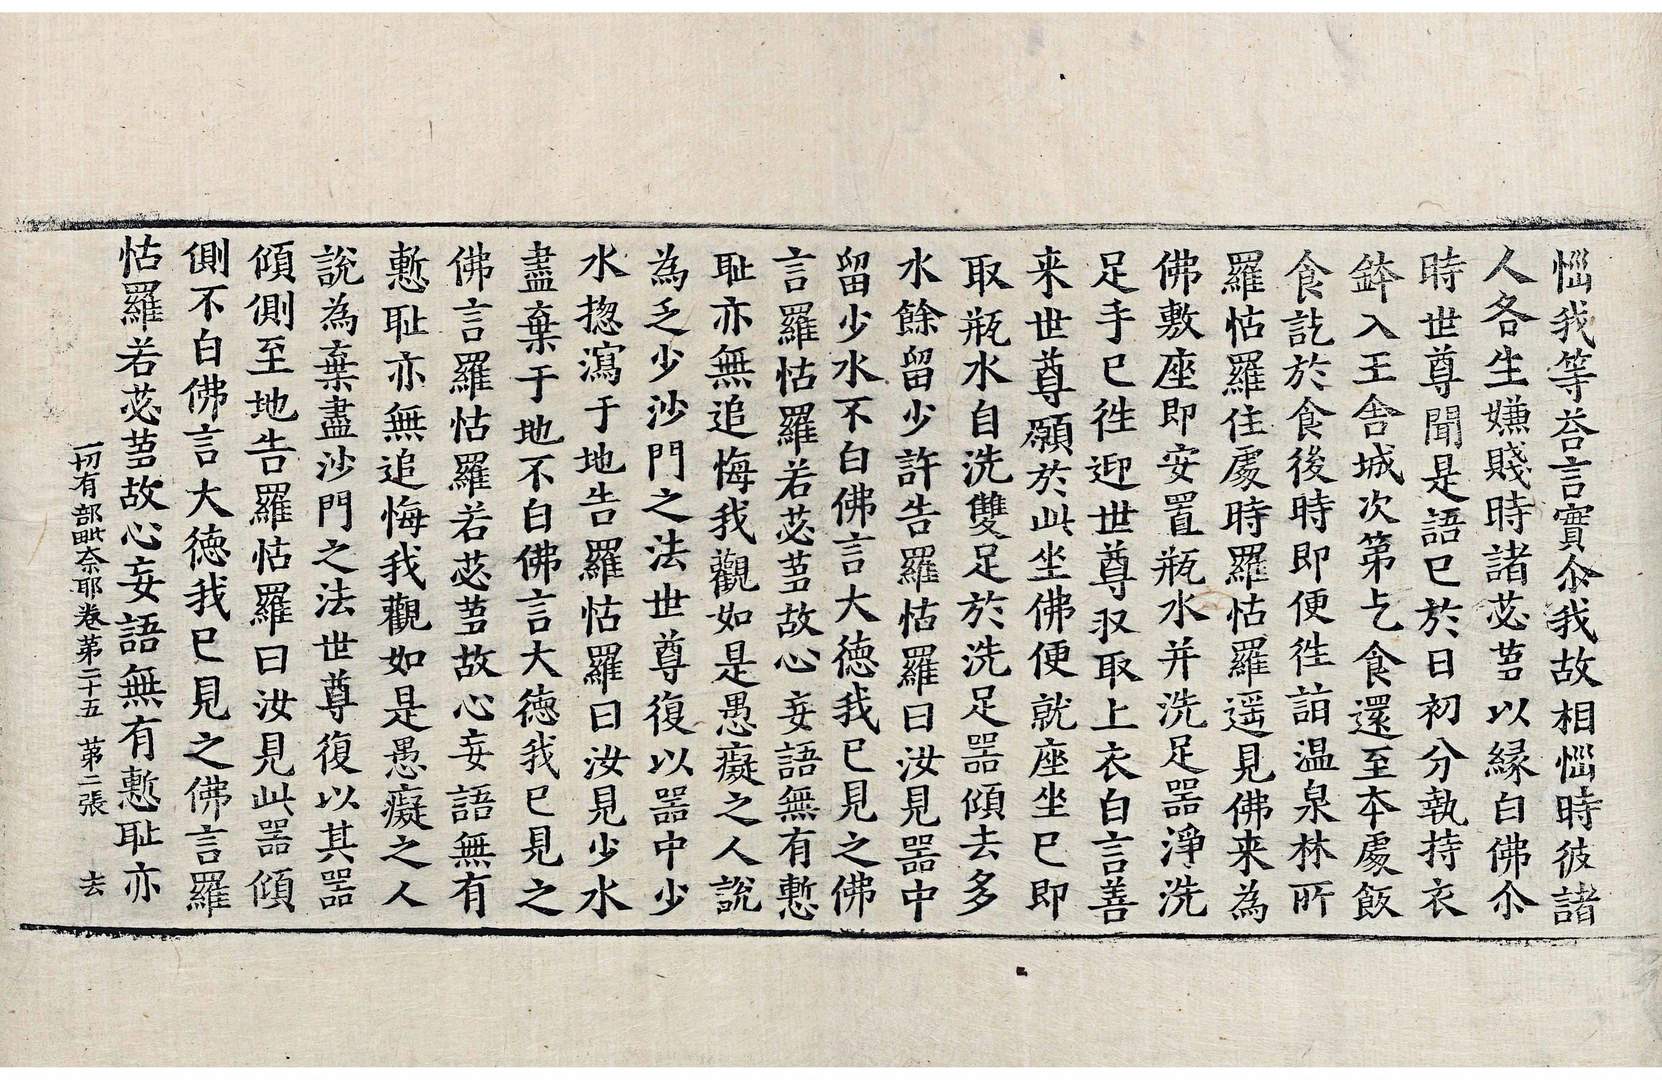 惱我等荅言實尒我故相惱時彼諸
人各生嫌賤時諸苾芻以緣白佛尒
時世尊聞是語已於日初分執持衣
鉢入王舍城次第乞食還至本處飯
食訖於食後時即便徃詣温泉林所
羅怙羅住處時羅怙羅遥見佛来為
佛敷座即安置瓶水并洗足器淨洗
足手已徃迎世尊収取上衣白言善
来世尊願於此坐佛便就座坐已即
取瓶水自洗雙足於洗足器傾去多
水餘留少許告羅怙羅曰汝見器中
留少水不白佛言大德我已見之佛
言羅怙羅若苾芻故心妄語無有慙
耻亦無追悔我觀如是愚癡之人說
為乏少沙門之法世尊復以器中少
水揔瀉于地告羅怙羅曰汝見少水
盡棄于地不白佛言大德我已見之
佛言羅怙羅若苾芻故心妄語無有
慙耻亦無追悔我觀如是愚癡之人
說為棄盡沙門之法世尊復以其器
傾側至地告羅怙羅曰汝見此器傾
側不白佛言大德我已見之佛言羅
怙羅若苾芻故心妄語無有慙耻亦
一切有部毗奈耶卷第二十五 第二張 去